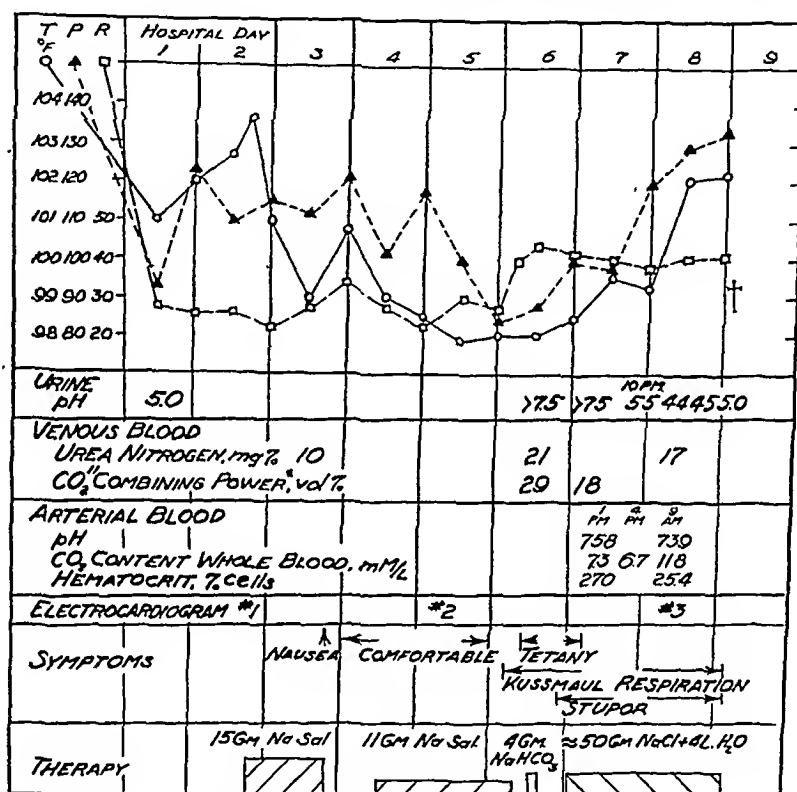 T P R HOSPITAL DAY
°F 1 2 3 4 5 6 7 8 9
104 140
103 130
102 120
101 110 50
100 100 40
99 90 30
98 80 20
URINE 10 P.M.
pH 5.0 >7.5 >75 55 4445 5.0
VENOUS BLOOD
UREA NITROGEN, mg% 10 21 17
CO₂ "COMBINING POWER", vol% 29 18
ARTERIAL BLOOD 1 PM 4 PM 9 AM
pH 758 739
CO₂ CONTENT WHOLE BLOOD, mM/L 73 67 118
HEMATOCRIT, % cells 270 254
ELECTROCARDIOGRAM #1 #2 #3
NAUSEA COMFORTABLE TETANY
SYMPTOMS
KUSSMAUL RESPIRATION
STUPOR
15 Gm Na Sal 11 Gm Na Sal 4 Gm NaHCO₃ ≈50 Gm NaCl + 4L. H₂O
THERAPY